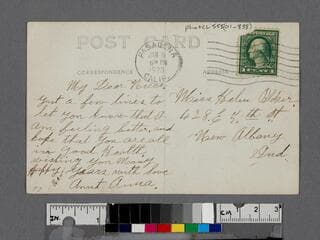 photCL 555(01-835)
POST CARD
PASADENA
CALIF.
CORRESPONDENCE
ADDRESS
My Dear Niece
Just a few lines to
let you know that I
am feeling better, and
hope that you are all
in Good Health,
wishing you Many
Happy Years, with love
Aunt Anna.
Miss Helen
428 E 4th St
New Albany
Ind.
INCH
1
2
CM
1
2
3